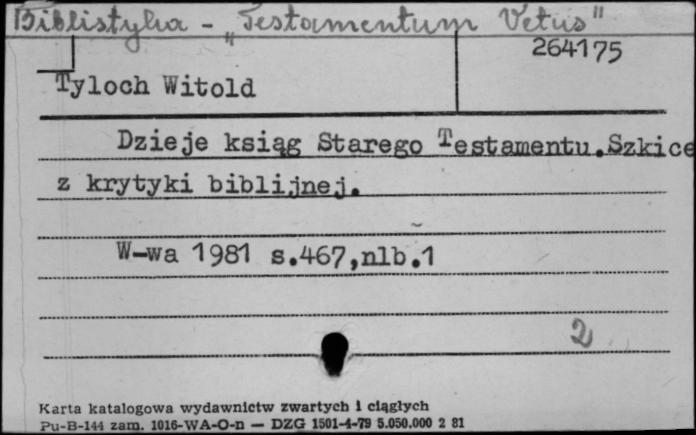 Biblistyka - „Testamentum Vetus"
264175
Tyloch Witold
Dzieje ksiąg Starego Testamentu.Szkice
z krytyki biblijnej.
W-wa 1981 s.467,nlb.1
2
Karta katalogowa wydawnictw zwartych i ciągłych
Pu-B-144 zam. 1016-WA-O-n — DZG 1501-4-79 5.050.000 2 81